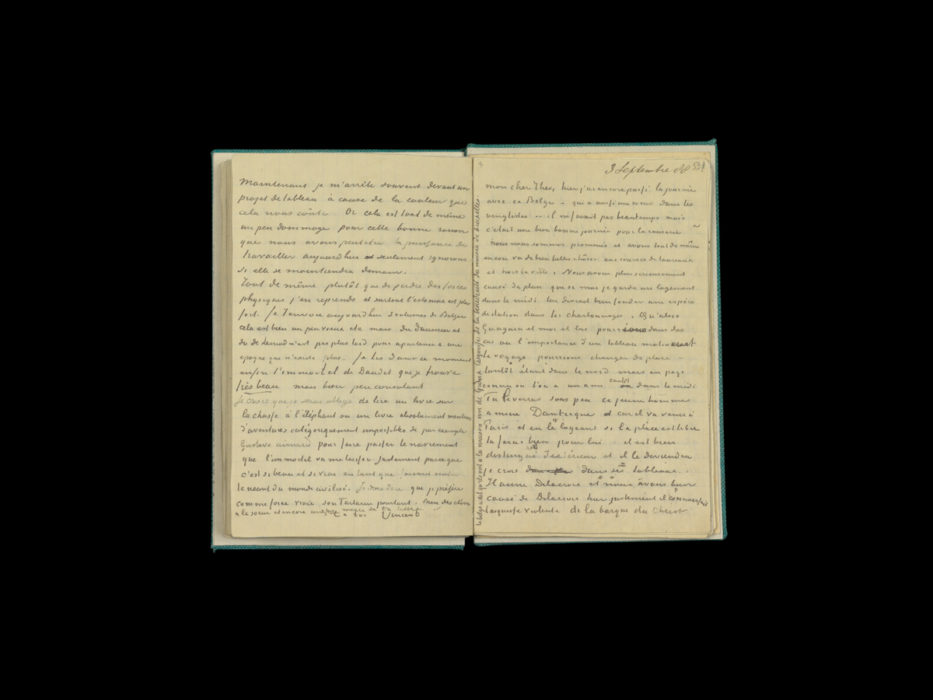 Maintenant je m'arrête souvent devant un
projet de tableau à cause de la couleur que
cela nous coûte. Or cela est tout de même
un peu dommage pour cette bonne raison
que nous avons peut être la puissance de
travailler aujourd'hui et seulement ignorons
si elle se maintiendra demain.
Tout de même plutôt que de perdre des forces
physiques j'en reprends et surtout l'estomac est plus
fort. Je t'envoie aujourd'hui 3 volumes de Balzac
cela est bien un peu vieux etc. mais du Daumier et
du de Lemud n'est pas plus laid pour appartenir à une
époque qui n'existe plus. Je lis dans ce moment
enfin l'immortel de Daudet que je trouve
très beau mais bien peu consolant
Je crois que je serai obligé de lire un livre sur
la chasse à l'éléphant ou un livre absolument menteur
d'aventures catégoriquement impossibles de par exemple
Gustave Aimard pour faire passer le navrement
que l'immortel va me laisser. Justement parceque
c'est si beau et si vrai en tant que
le néant du monde civilisé. Je dois dire que je préfère
comme force vraie son Tartarin pourtant. bien des choses
à la soeur et encore une fois merci de ta lettre
t. à toi Vincent
3 Septembre 88
mon cher Theo, hier j'ai encore passé la journée
avec ce Belge – qui a aussi une soeur dans les
vingtistes – il ne faisait pas beau temps mais
c'était une bien bonne journée pour la causerie
nous nous sommes promenés et avons tout de même
encore vu de bien belles choses aux courses de taureaux
et hors la ville. Nous avons plus sérieusement
causé du plan que si moi je garde un logement
dans le midi lui devrait bien fonder une espèce
de station dans les charbonnages. Qu'alors
Gauguin et moi et lui pourrions dans des
cas où l'importance d'un tableau motiverait
le voyage pourrions changer de place –
tantôt étant dans le nord mais en pays
connu où l'on a un ami, tantôt dans le midi.
Tu le verras sous peu ce jeune homme
à mine Dantesque et car il va venir à
Paris et en le logeant si la place est libre
tu feras bien pour lui. il est bien
distingué d'extérieur et il le deviendra
je crois dans ses tableaux.
Il aime Delacroix et nous avons beaucoup
causé de Delacroix hier justement il connaissait
l'esquisse violente de la barque du Christ